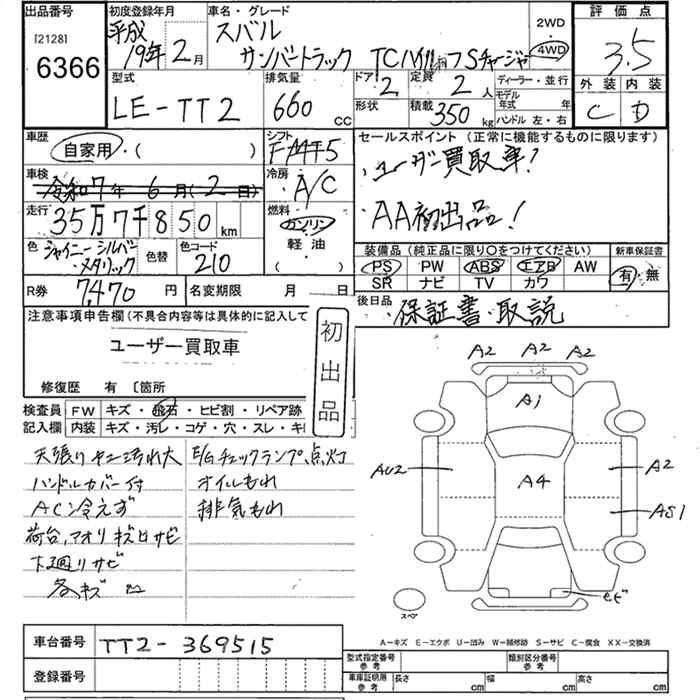 出品番号
[2128]
6366
初度登録年月
平成
19年 2月
車名・グレード
スバル
サンバートラック TCハイルーフSチャージャ
2WD
4WD
評価点
3.5
外装 内装
C D
型式
LE-TT2
排気量
660 CC
ドア 2
形状
定員 2 人
積載 350 kg
ディーラー・並行
モデル年式 年
ハンドル 左・右
車歴
自家用・( )
シフト
FAT5
セールスポイント (正常に機能するものに限ります)
・ユーザー買取車!
・AA初出品!
車検
令和 7年 6月 (2日)
冷房
A/C
走行
35万7千850 km
燃料
ガソリン
軽油
( )
色
シャイニーシルバーメタリック
色替
色コード
210
装備品 (純正品に限り○をつけてください)
PS PW ABS エアB AW
SR ナビ TV カワ
新車保証書
有・無
R券 7,470 円
名変期限 月 日
後日品
・保証書・取説
注意事項申告欄(不具合内容等は具体的に記入して
ユーザー買取車
修復歴 有 〔箇所
初出品
検査員記入欄
FW キズ・飛石・ヒビ割・リペア跡
内装 キズ・汚レ・コゲ・穴・スレ・キ
天張りヤニ汚れ大
ハンドルカバー付
AC冷えず
荷台、アオリ キズ凹サビ
下廻りサビ
各キズ凹
E/Gチェックランプ点灯
オイルもれ
排気もれ
A2 A2 A2
A1
AU2
A4
A2
AS1
サビ
スペア
A-キズ E-エクボ U-凹み W-補修跡 S-サビ C-腐食 XX-交換済
車台番号 TT2-369515
登録番号
型式指定番号 参考
類別区分番号 参考
車庫証明用 参考
長さ cm 幅 cm 高さ cm